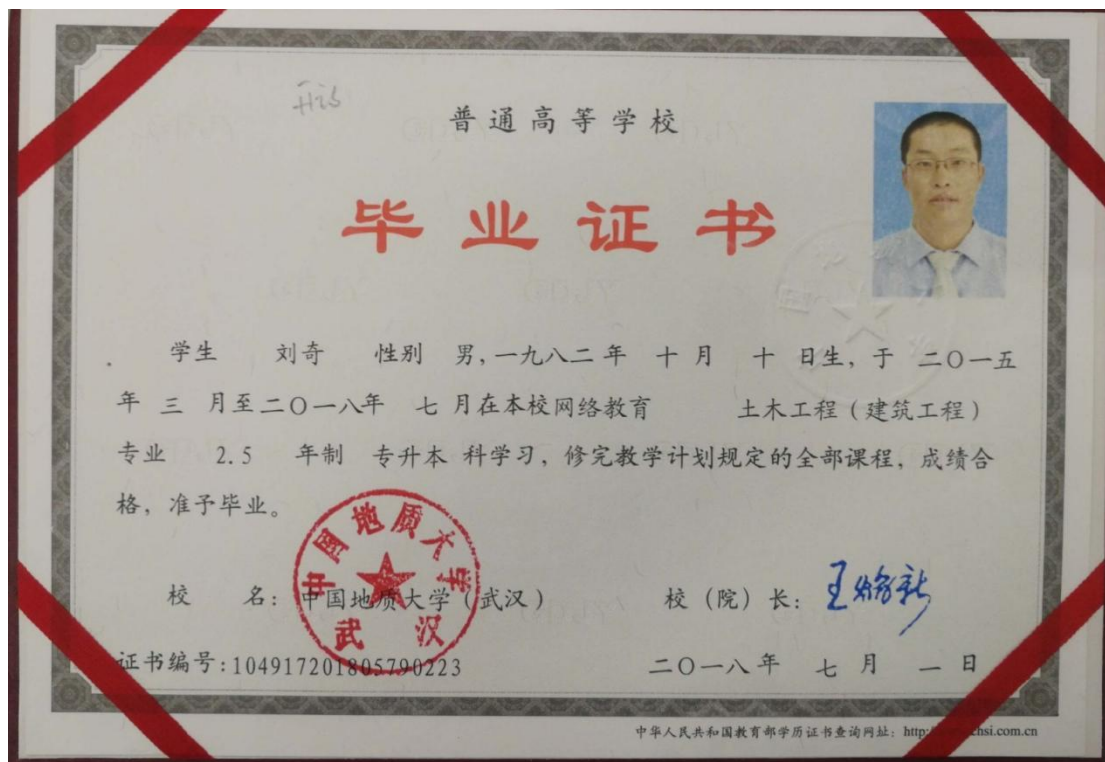 普通高等学校
毕业证书
学生 刘奇 性别 男,一九八二年 十月 十 日生,于 二〇一五
年 三 月至二〇一八年 七 月在本校网络教育 土木工程(建筑工程)
专业 2.5 年制 专升本 科学习,修完教学计划规定的全部课程,成绩合
格,准予毕业。
中国地质大学
武汉
校 名:中国地质大学(武汉) 校(院)长:王焰新
证书编号:104917201805790223 二〇一八年 七 月 一 日
中华人民共和国教育部学历证书查询网址:http: chsi.com.cn